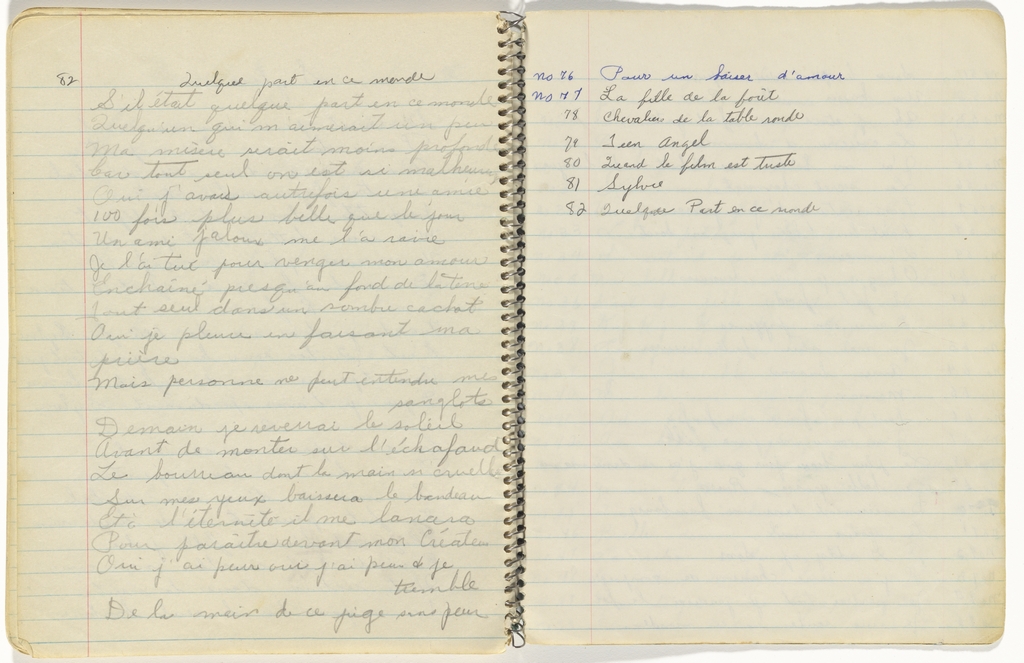 82 Quelque part en ce monde
S'il était quelque part en ce monde
Quelqu'un qui m'aimerait un peu
Ma misère serait moins profonde
Car tout seul on est si malheureux
Oui j'avais autrefois une amie
100 fois plus belle que le jour
Un ami jaloux me l'a ravie
Je l'ai tué pour venger mon amour
Enchaîné presqu'au fond de la terre
Tout seul dans un sombre cachot
Oui je pleure en faisant ma
prière
Mais personne ne peut entendre mes
sanglots
Demain je reverrai le soleil
Avant de monter sur l'échafaud
Le bourreau dont la main si cruelle
Sur mes yeux baissera le bandeau
Et à l'éternité il me lancera
Pour paraître devant mon Créateur
Oui j'ai peur oui j'ai peur & je
tremble
De la main de ce juge sans peur
No 76 Pour un baiser d'amour
No 77 La fille de la forêt
78 Chevalier de la table ronde
79 Teen Angel
80 Quand le film est triste
81 Sylvie
82 Quelque Part en ce monde